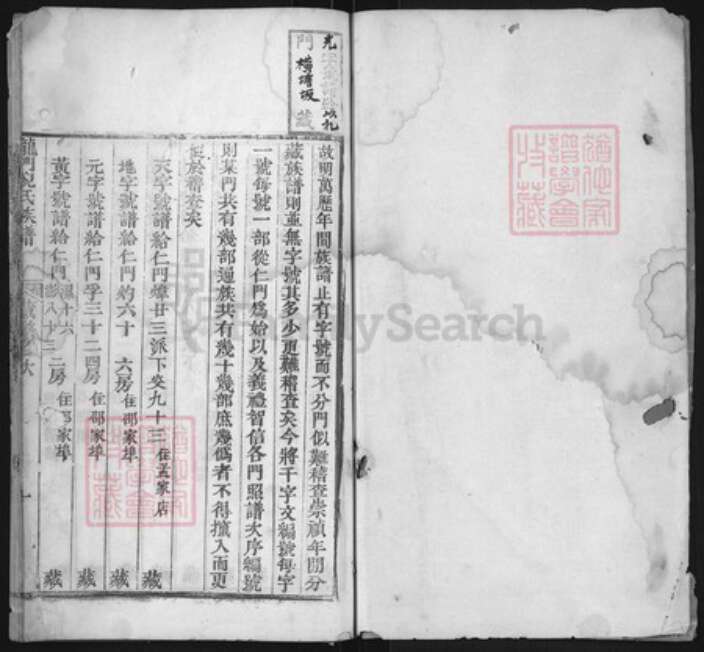 光
門 橫埓坂 藏
故明萬歷年間族譜止有字號而不分門似難稽查崇禎年間分
藏族譜則並無字號其多少更難稽查矣今將千字文編號每字
一號每號一部從仁門爲始以及義禮智信各門照譜次序編號
則某門共有幾部通族共有幾十幾部庶幾僞者不得攙入而更
於稽查矣
天字號譜給仁門 廿三派下 九十三 住孟家店 藏
地字號譜給仁門灼六十 六房住鄒家埠 藏
元字號譜給仁門孚三十二四房 住鄒家埠 藏
黃字號譜給仁門 十六 八十三 二房 住鄒家埠 藏
氏族譜
譜學會
收藏
FamilySearch